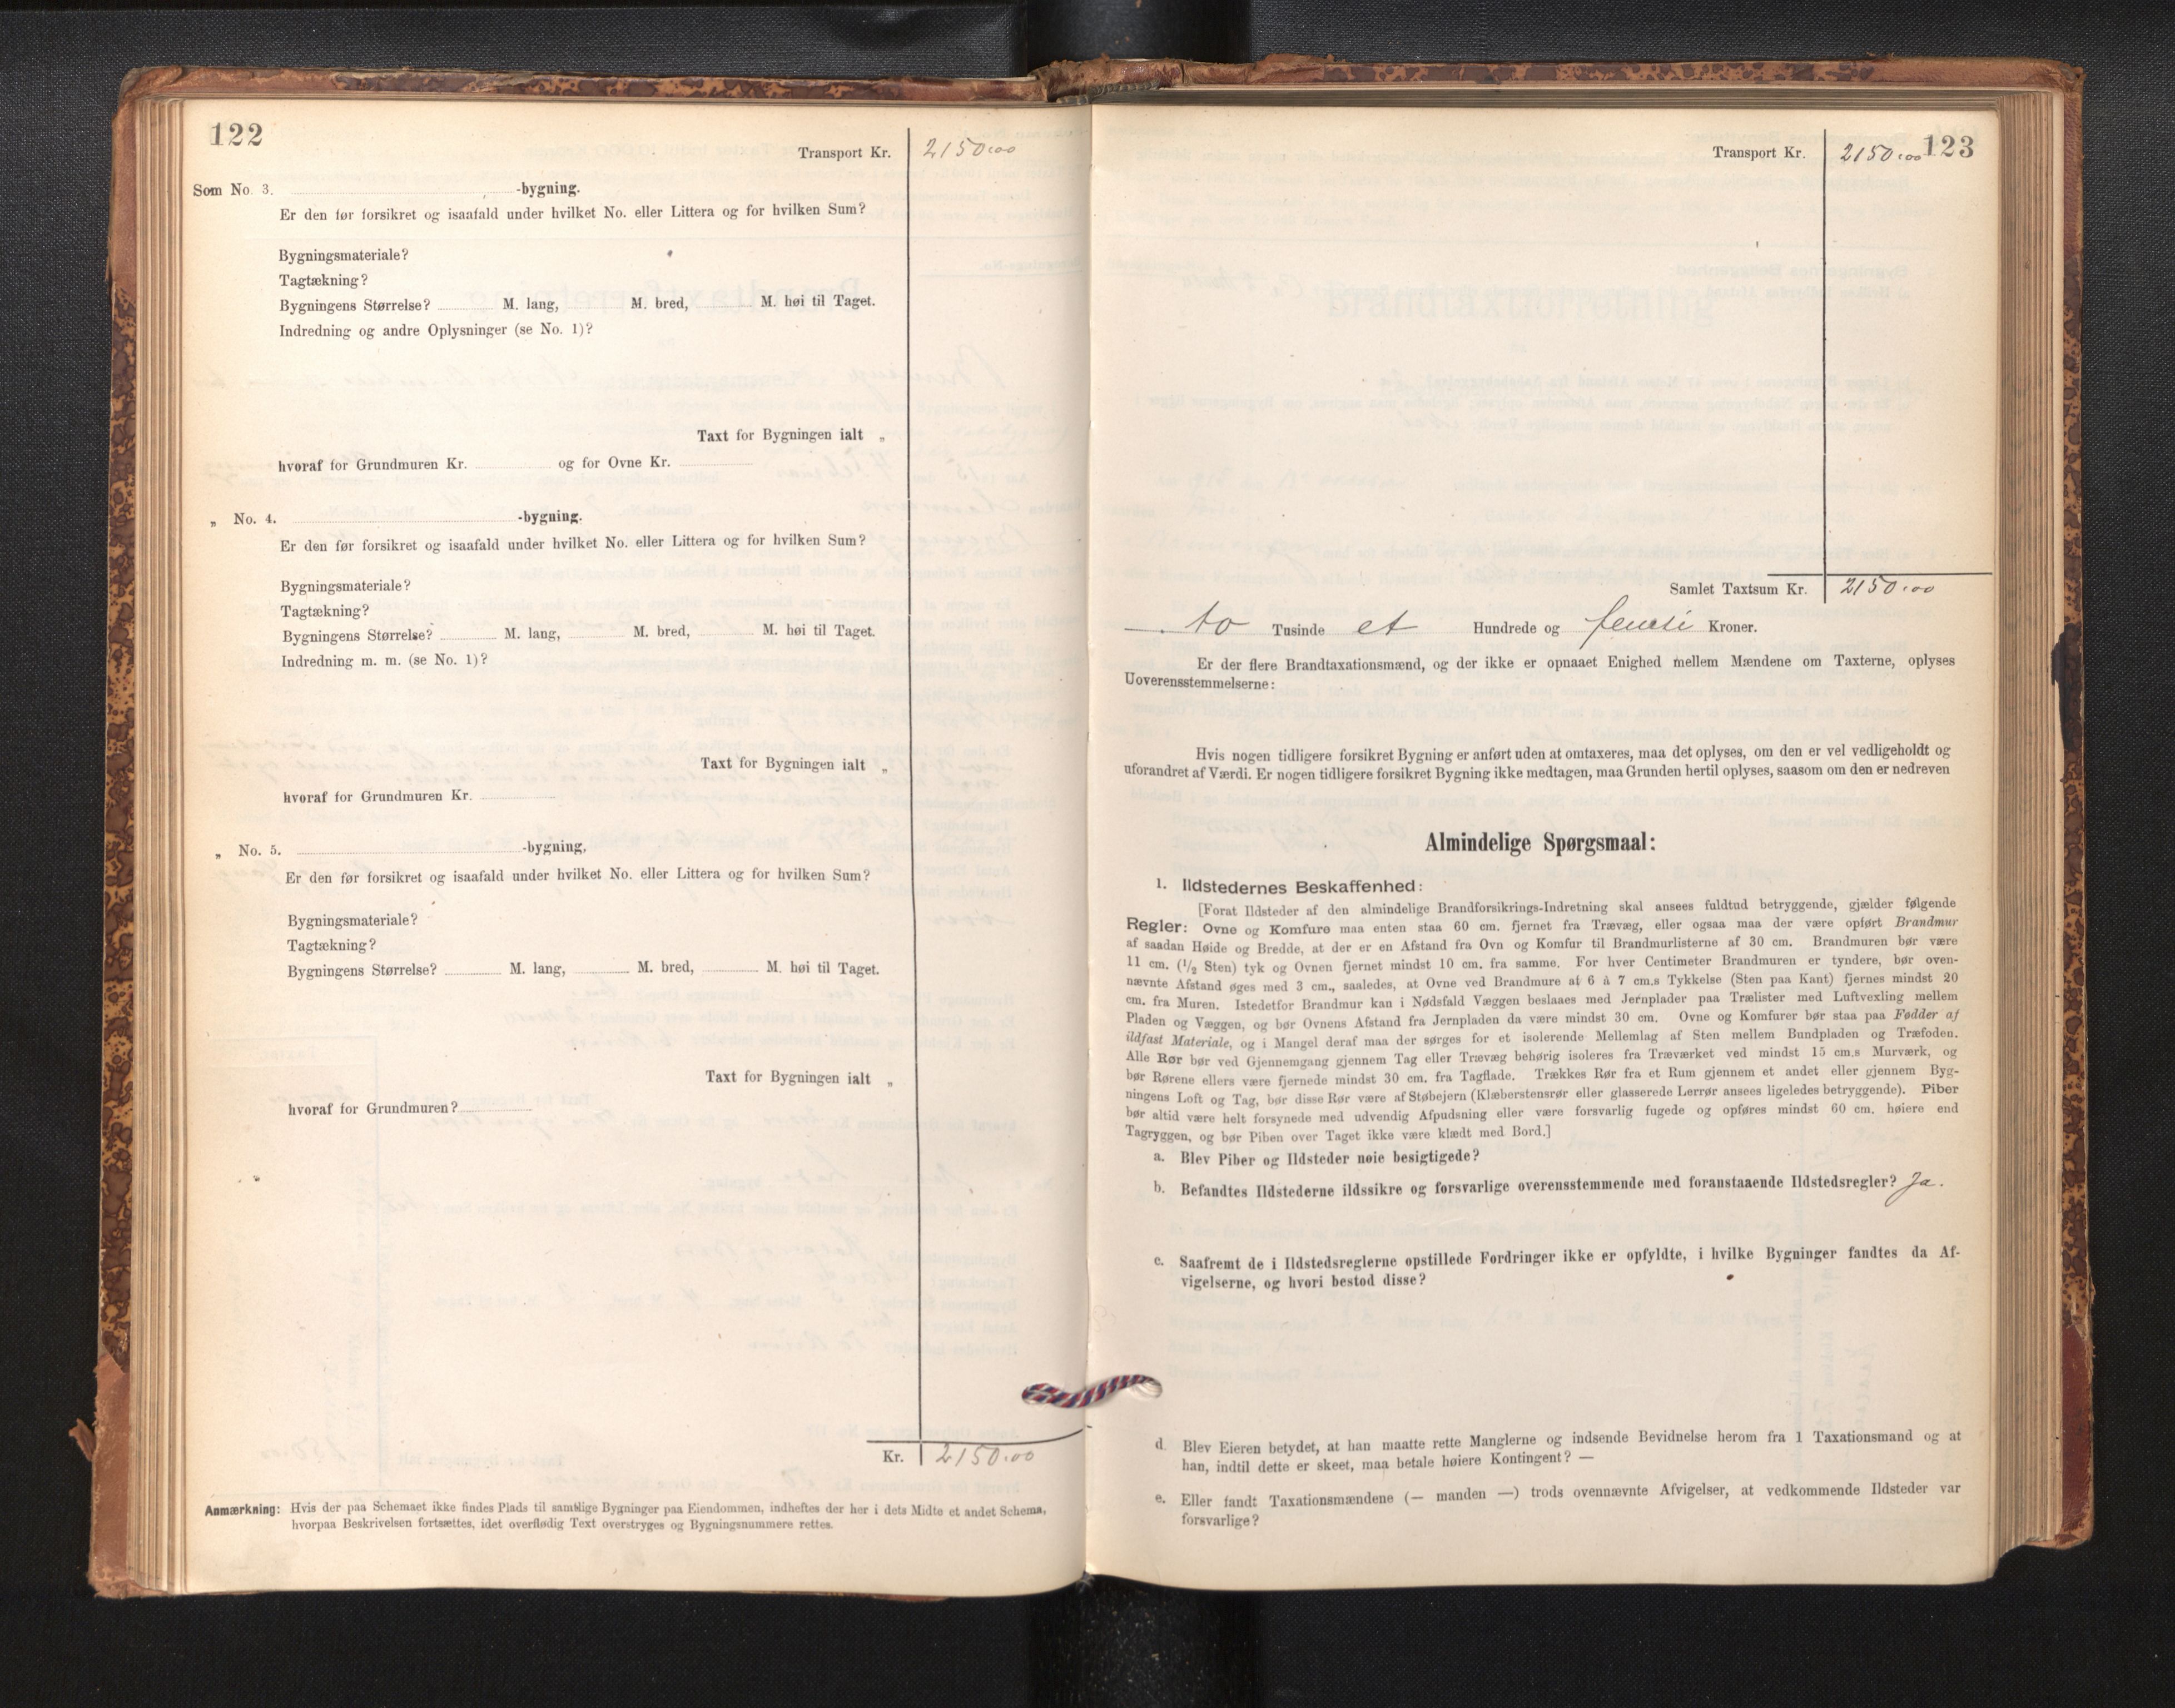 122
Transport Kr. 2150.00
Som No. 3. -bygning.
Er den før forsikret og isaafald under hvilket No. eller Littera og for hvilken Sum?
Bygningsmateriale?
Tagtækning?
Bygningens Størrelse? M. lang, M. bred, M. høi til Taget.
Indredning og andre Oplysninger (se No. 1)?
Taxt for Bygningen ialt „
hvoraf for Grundmuren Kr. og for Ovne Kr.
„ No. 4. -bygning.
Er den før forsikret og isaafald under hvilket No. eller Littera og for hvilken Sum?
Bygningsmateriale?
Tagtækning?
Bygningens Størrelse? M. lang, M. bred, M. høi til Taget.
Indredning m. m. (se No. 1)?
Taxt for Bygningen ialt „
hvoraf for Grundmuren Kr.
„ No. 5. -bygning,
Er den før forsikret og isaafald under hvilket No. eller Littera og for hvilken Sum?
Bygningsmateriale?
Tagtækning?
Bygningens Størrelse? M. lang, M. bred, M. høi til Taget.
Taxt for Bygningen ialt „
hvoraf for Grundmuren?
Kr. 2150.00
Anmærkning: Hvis der paa Schemaet ikke findes Plads til samtlige Bygninger paa Eiendommen, indheftes der her i dets Midte et andet Schema,
hvorpaa Beskrivelsen fortsættes, idet overflødig Text overstryges og Bygningsnummere rettes.
123
Transport Kr. 2150.00
Samlet Taxtsum Kr. 2150.00
to Tusinde et Hundrede og femti Kroner.
Er der flere Brandtaxationsmænd, og der ikke er opnaaet Enighed mellem Mændene om Taxterne, oplyses
Uoverensstemmelserne:
Hvis nogen tidligere forsikret Bygning er anført uden at omtaxeres, maa det oplyses, om den er vel vedligeholdt og
uforandret af Værdi. Er nogen tidligere forsikret Bygning ikke medtagen, maa Grunden hertil oplyses, saasom om den er nedreven
Almindelige Spørgsmaal:
1. Ildstedernes Beskaffenhed:
[Forat Ildsteder af den almindelige Brandforsikrings-Indretning skal ansees fuldtud betryggende, gjælder følgende
Regler: Ovne og Komfure maa enten staa 60 cm. fjernet fra Trævæg, eller ogsaa maa der være opført Brandmur
af saadan Høide og Bredde, at der er en Afstand fra Ovn og Komfur til Brandmurlisterne af 30 cm. Brandmuren bør være
11 cm. (1/2 Sten) tyk og Ovnen fjernet mindst 10 cm. fra samme. For hver Centimeter Brandmuren er tyndere, bør oven-
nævnte Afstand øges med 3 cm., saaledes, at Ovne ved Brandmure af 6 à 7 cm.s Tykkelse (Sten paa Kant) fjernes mindst 20
cm. fra Muren. Istedetfor Brandmur kan i Nødsfald Væggen beslaaes med Jernplader paa Trælister med Luftvexling mellem
Pladen og Væggen, og bør Ovnens Afstand fra Jernpladen da være mindst 30 cm. Ovne og Komfurer bør staa paa Fødder af
ildfast Materiale, og i Mangel deraf maa der sørges for et isolerende Mellemlag af Sten mellem Bundpladen og Træfoden.
Alle Rør bør ved Gjennemgang gjennem Tag eller Trævæg behørig isoleres fra Træværket ved mindst 15 cm.s Murværk, og
bør Rørene ellers være fjernede mindst 30 cm. fra Tagflade. Trækkes Rør fra et Rum gjennem et andet eller gjennem Byg-
ningens Loft og Tag, bør disse Rør være af Støbejern (Klæberstensrør eller glasserede Lerrør ansees ligeledes betryggende). Piber
bør altid være helt forsynede med udvendig Afpudsning eller være forsvarlig fugede og opføres mindst 60 cm. høiere end
Tagryggen, og bør Piben over Taget ikke være klædt med Bord.]
a. Blev Piber og Ildsteder nøie besigtigede?
b. Befandtes Ildstederne ildssikre og forsvarlige overensstemmende med foranstaaende Ildstedsregler? Ja.
c. Saafremt de i Ildstedsreglerne opstillede Fordringer ikke er opfyldte, i hvilke Bygninger fandtes da Af-
vigelserne, og hvori bestod disse?
d. Blev Eieren betydet, at han maatte rette Manglerne og indsende Bevidnelse herom fra 1 Taxationsmand og at
han, indtil dette er skeet, maa betale høiere Kontingent? —
e. Eller fandt Taxationsmændene (— manden —) trods ovennævnte Afvigelser, at vedkommende Ildsteder var
forsvarlige?